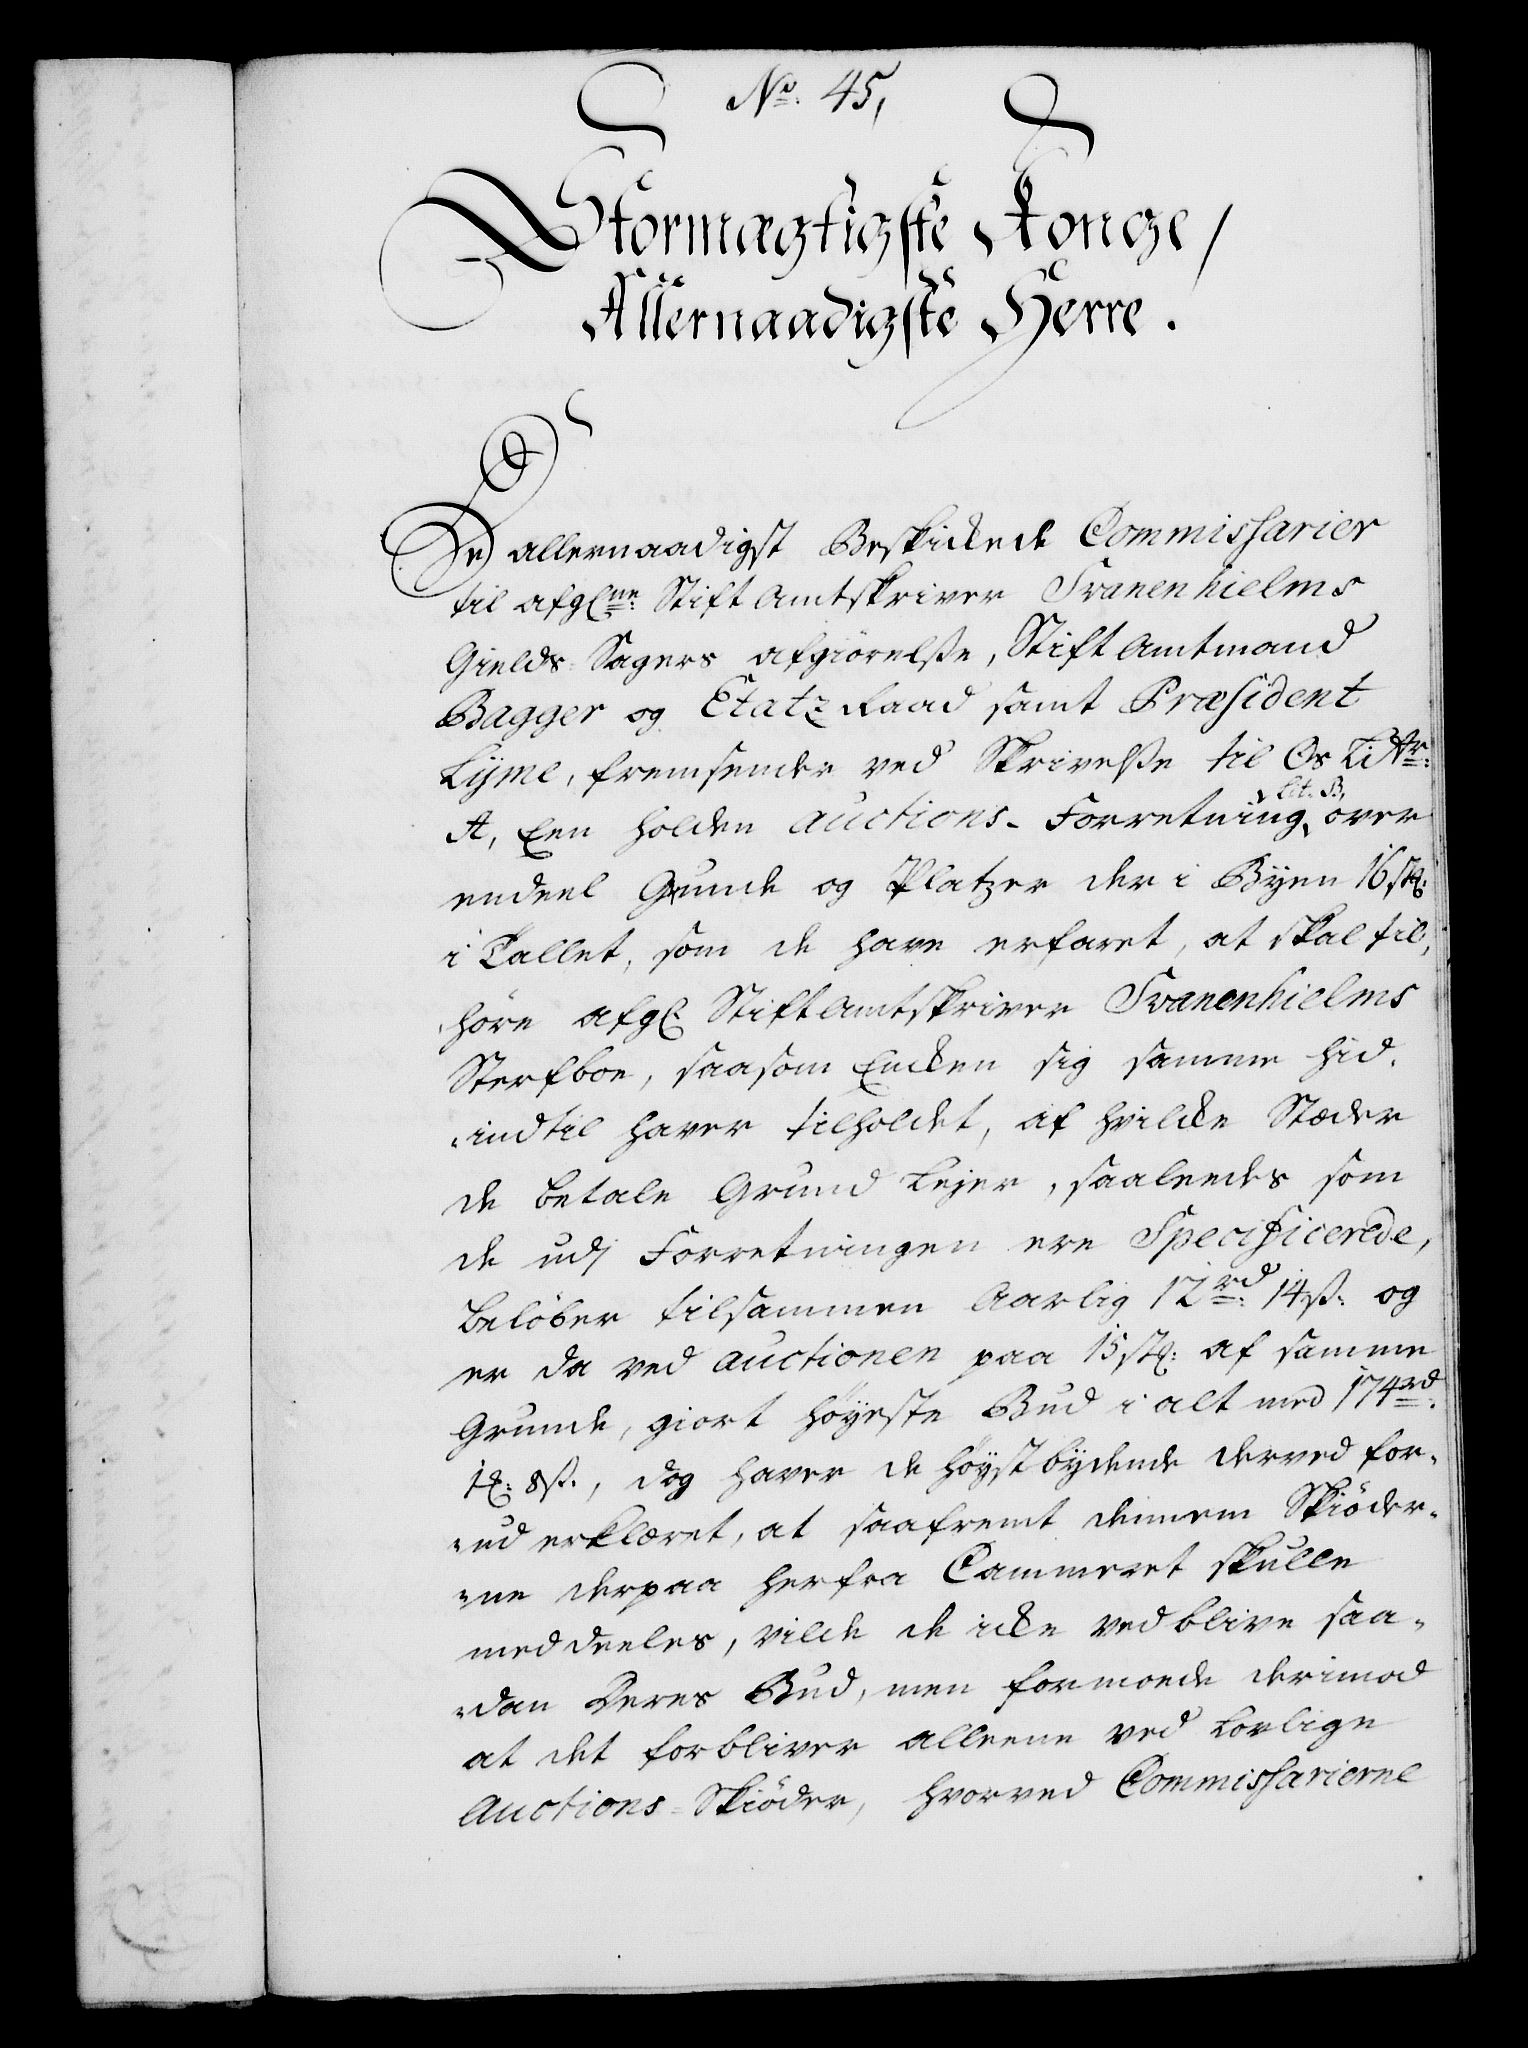 No. 45,
Stormægtigste Konge/
Allernaadigste Herre.
De allernaadigst Beskickede Commissarier
til afgl:ne Stift Amtskriver Svanenhielms
Gields-Sagers afgiörelse, Stift Amtmand
Bagger og Etatz Raad samt Præsident
Lyme, fremsender ved Skrivelse til Os Littr:
A, Een holden Auctions-Forretning, Lit. B, over
endeel Grunde og Platzer der i Byen 16 stk:
i Tallet, som de have erfaret, at skal til-
höre afgl: Stiftamtskriver Svanenhielms
Sterfboe, saasom Encken sig samme hid-
indtil haver tilholdet, af hvilcke Stæder
de betale Grund Lejer, saaledes som
de udj Forretningen ere Specificerede,
beløber tilsammen Aarlig 12 rd: 14 ß: og
er da ved Auctionen paa 15 stk: af samme
Grunde, giort höyeste Bud i alt med 174 rd:
1 ℔: 8 ß., dog haver de höystbydende derved for-
ud erklæret, at saafremt dennem Skiöder-
ne derpaa herfra Cammeret skulle
meddeeles, vilde de icke vedblive saa-
dan Deres Bud, men formoede derimod
at det forbliver alleene ved Lovlige
Auctions-Skiöder, hvorved Commissarierne